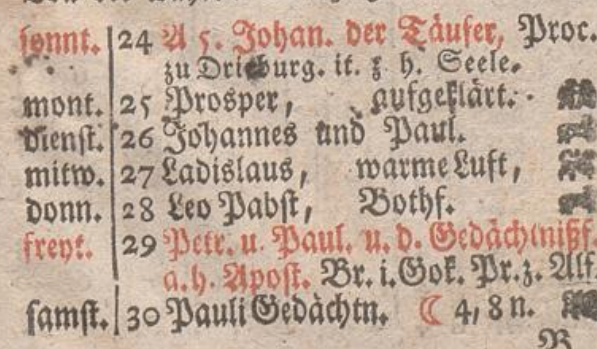 sonnt. 24 A 5. Johan. der Täufer, Proc.
zu Driburg. it. z h. Seele.
mont. 25 Prosper, aufgeklärt.
dienst. 26 Johannes und Paul.
mitw. 27 Ladislaus, warme Luft,
donn. 28 Leo Pabst, Bothf.
freyt. 29 Petr. u. Paul. u. d. Gedächtnißf.
a. h. Apost. Br. i. Gok. Pr. z. Alf.
samst. 30 Pauli Gedächtn. ☾ 4, 8 n.